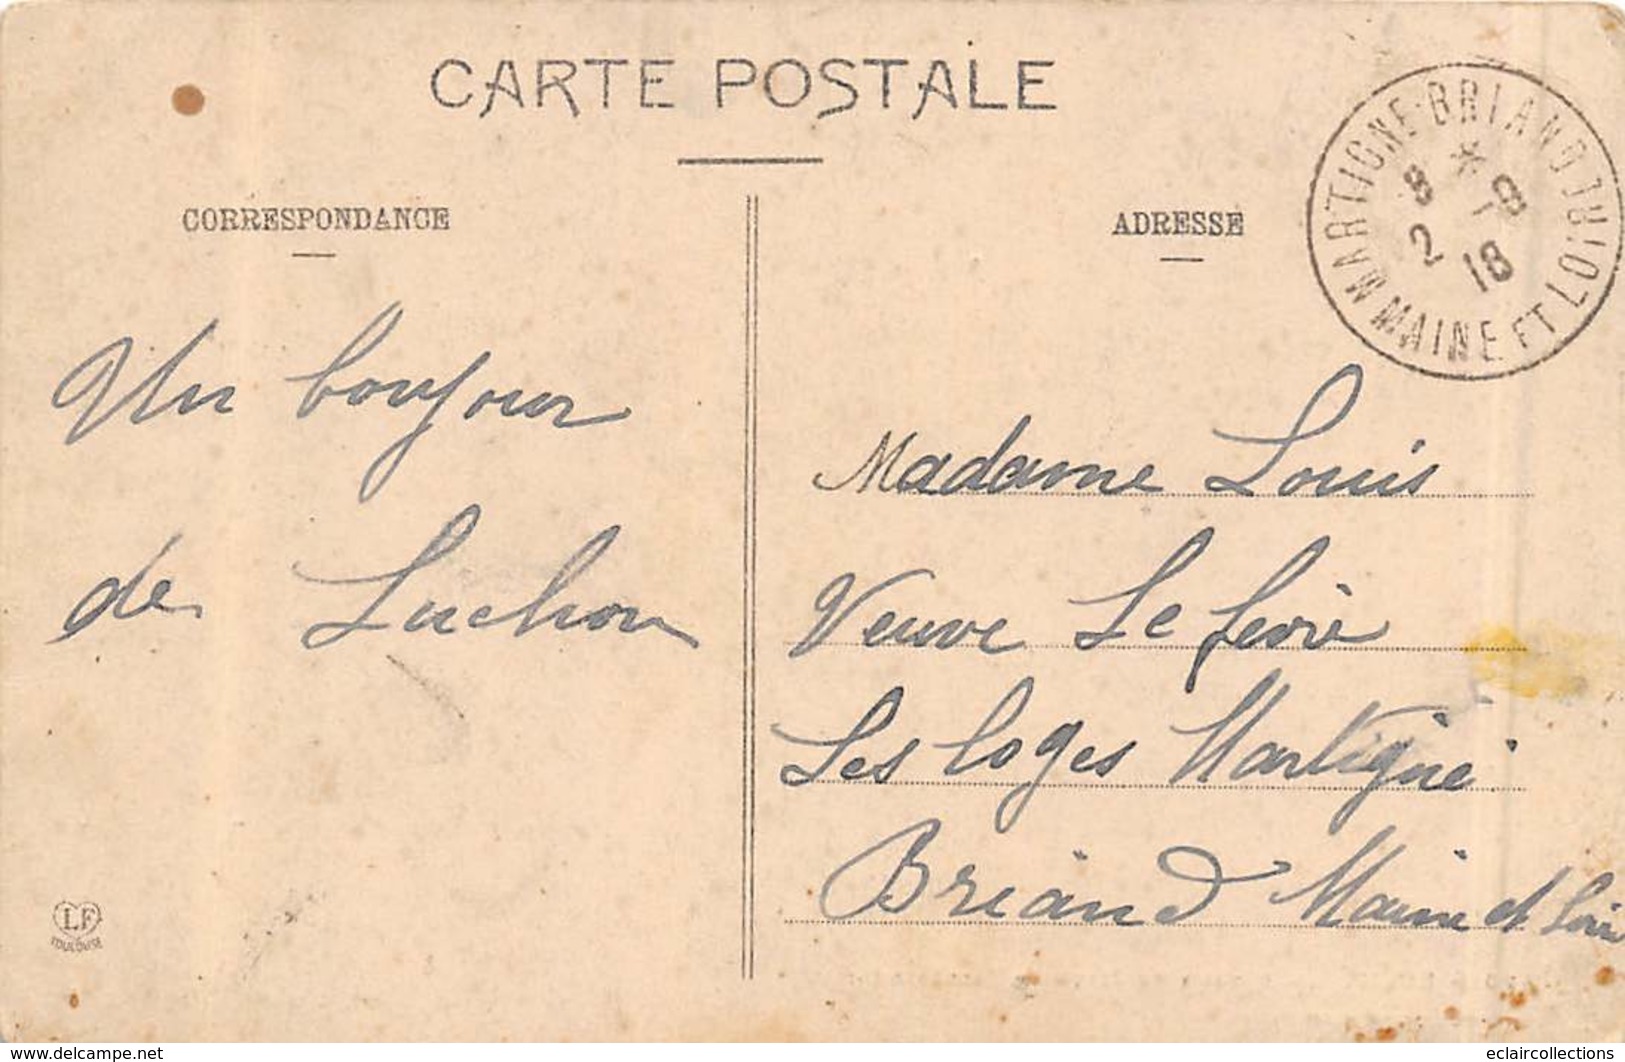 CARTE POSTALE
CORRESPONDANCE
ADRESSE
MARTIGNE-BRIAND
8 * 8
2 18
MAINE ET LOIRE
Un bonjour
de Luchon
Madame Louis
Veuve Le fèvre
Les loges Martigné
Briand Maine et Loire
LF
TOULOUSE
www.delcampe.net
eclaircollections